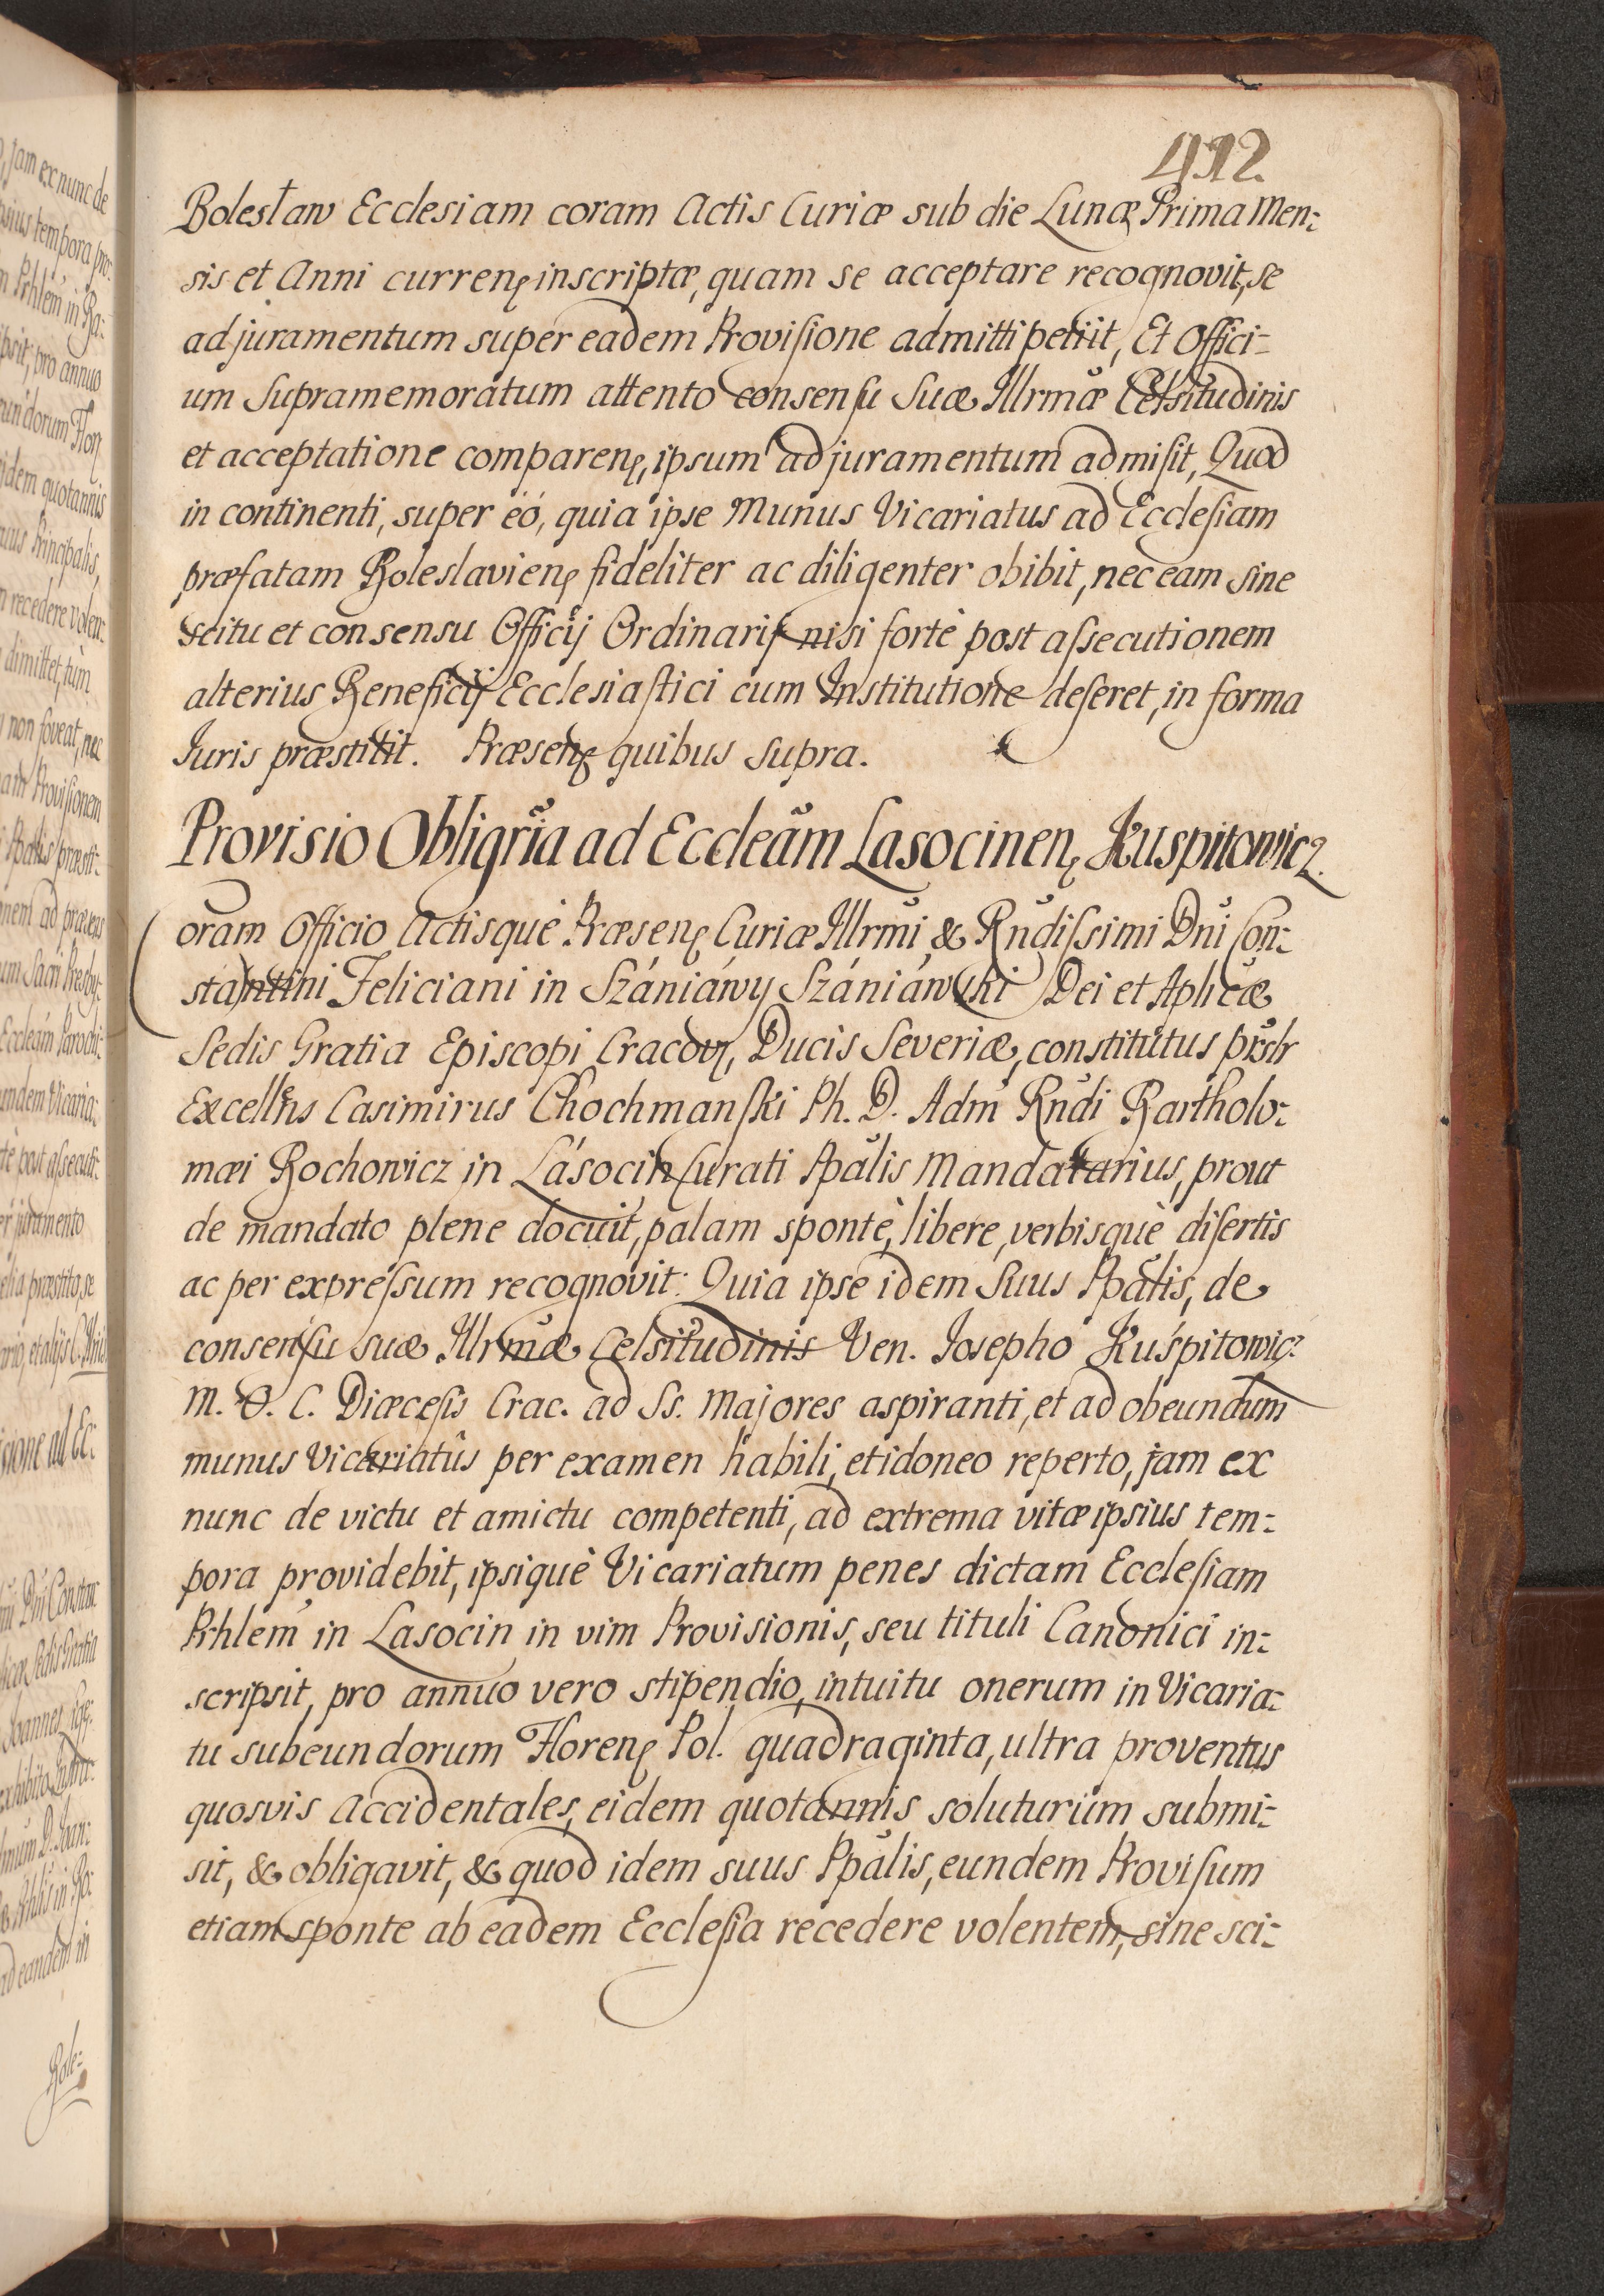 412.
Bolesław Ecclesiam coram Actis Curiæ sub die Lunæ Prima Men:
sis et Anni currenę inscriptæ, quam se acceptare recognovit, se
ad juramentum super eadem Proviſione admitti petiit, Et Offici=
um Supramemoratum attento consensu Suæ Illrmæ Celsitudinis
et acceptatione comparenę, ipsum ad juramentum admiſit, Quod
in continenti, super eó, quia ipse Munus Vicariatus ad Eccleſiam
præfatam Boleslavienę fideliter ac diligenter obibit, nec eam sine
scitu et consensu Officij Ordinarij nisi fortè post aſsecutionem
alterius Beneficij Eccleſiaſtici cum Institutione deſeret, in forma
Iuris præstitit. Præsenę quibus supra.
Provisio Obligrīa ad Eccleām Lasocinenę Kuspitowicz.
Coram Officio Actisquè Præsenę Curiæ Illrmi, & Rndiſsimi Dni Con:
stantini Feliciani in Szániáwy Szániáwſki Dei et Aplicæ
Sedis Gratia Episcopi Cracovę, Ducis Severiæ, constitutus prſtr
Excellens Casimirus Chochmanſki Ph. D. Adm Rndi Bartholo:
mæi Bochowicz in Lásocin Curati Ppālis Mandatarius, prout
de mandato plene docuit, palam spontè, libere, verbisquè diſertis
ac per expreſsum recognovit: Quia ipse idem Suus Ppālis, de
consenſu suæ Illrmæ Celsitudinis Ven. Iosepho Kuśpitowicz
M. O. C. Diœceſis Crac. ad Ss. Majores aspiranti, et ad obeundum
munus Vicariatûs per examen habili, et idoneo reperto, jam ex
nunc de victu et amictu competenti, ad extrema vitæ ipsius tem:
pora providebit, ipsiquè Vicariatum penes dictam Eccleſiam
Prhlem in Lasocin in vim Provisionis, seu tituli Canonici in:
scripsit, pro annuo vero stipendio, intuitu onerum in Vicaria:
tu subeundorum Florenę Pol. quadraginta, ultra proventus
quosvis accidentales, eidem quotannis soluturum submi:
sit, & obligavit, & quod idem suus Ppālis, eundem Proviſum
etiam sponte ab eadem Eccleſia recedere volentem, sine sci: